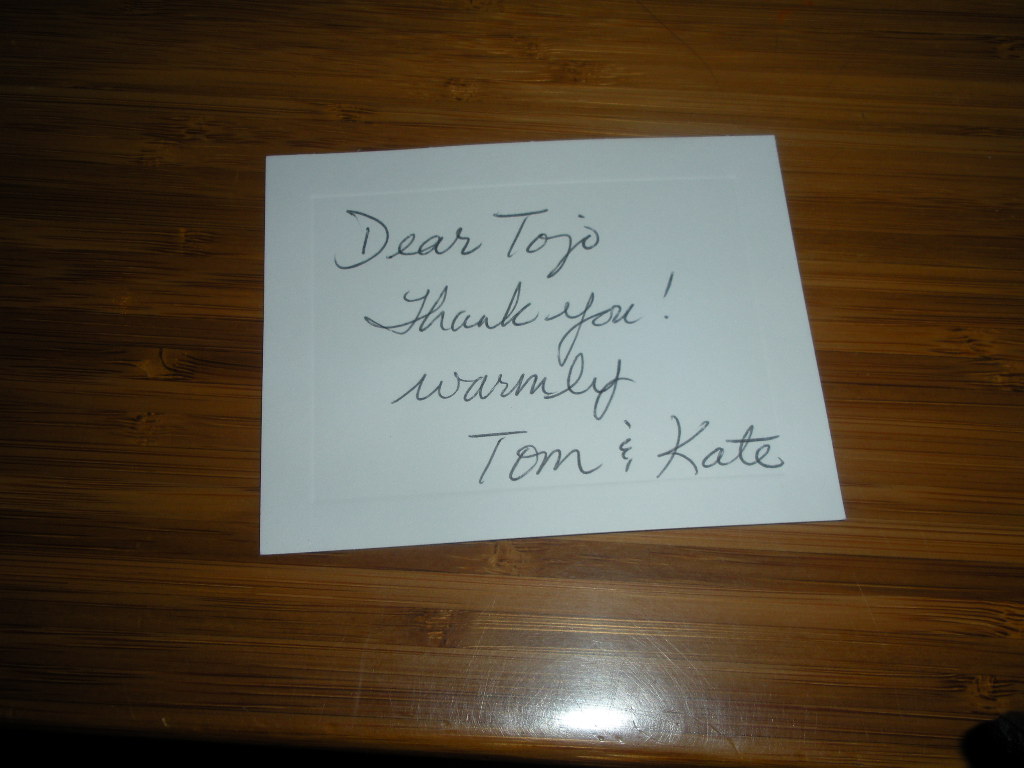 Dear Tojo
Thank you!
warmly
Tom & Kate